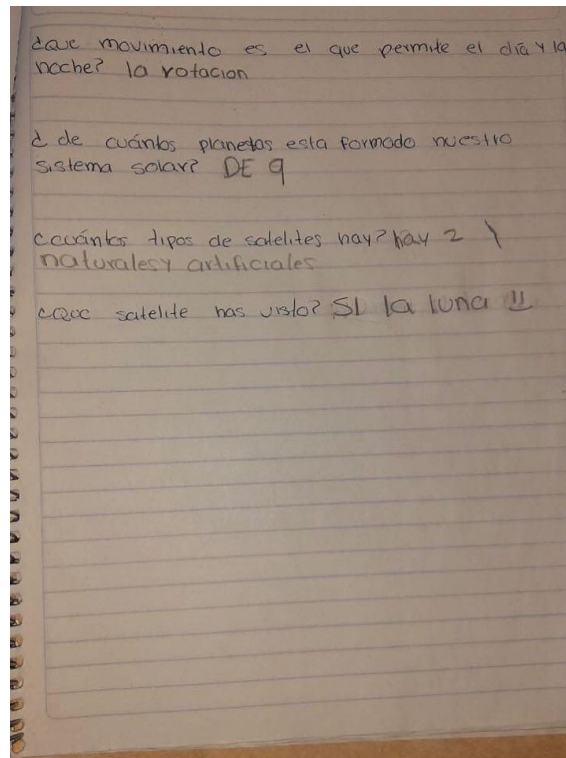 ¿Que movimiento es el que permite el día y la
noche? la rotacion
¿ de cuántos planetas esta formado nuestro
sistema solar? DE 9
¿cuántos tipos de satelites hay? hay 2
naturales y artificiales
¿Que satelite has visto? SI la luna